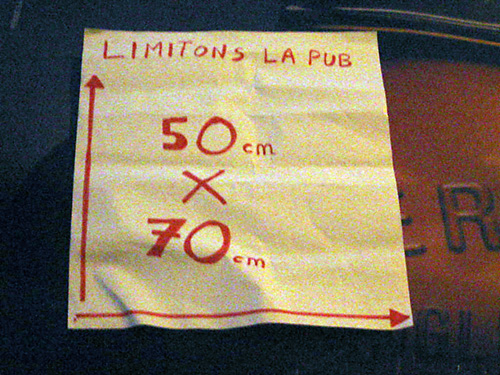 LIMITONS LA PUB
50 cm
X
70 cm
ER